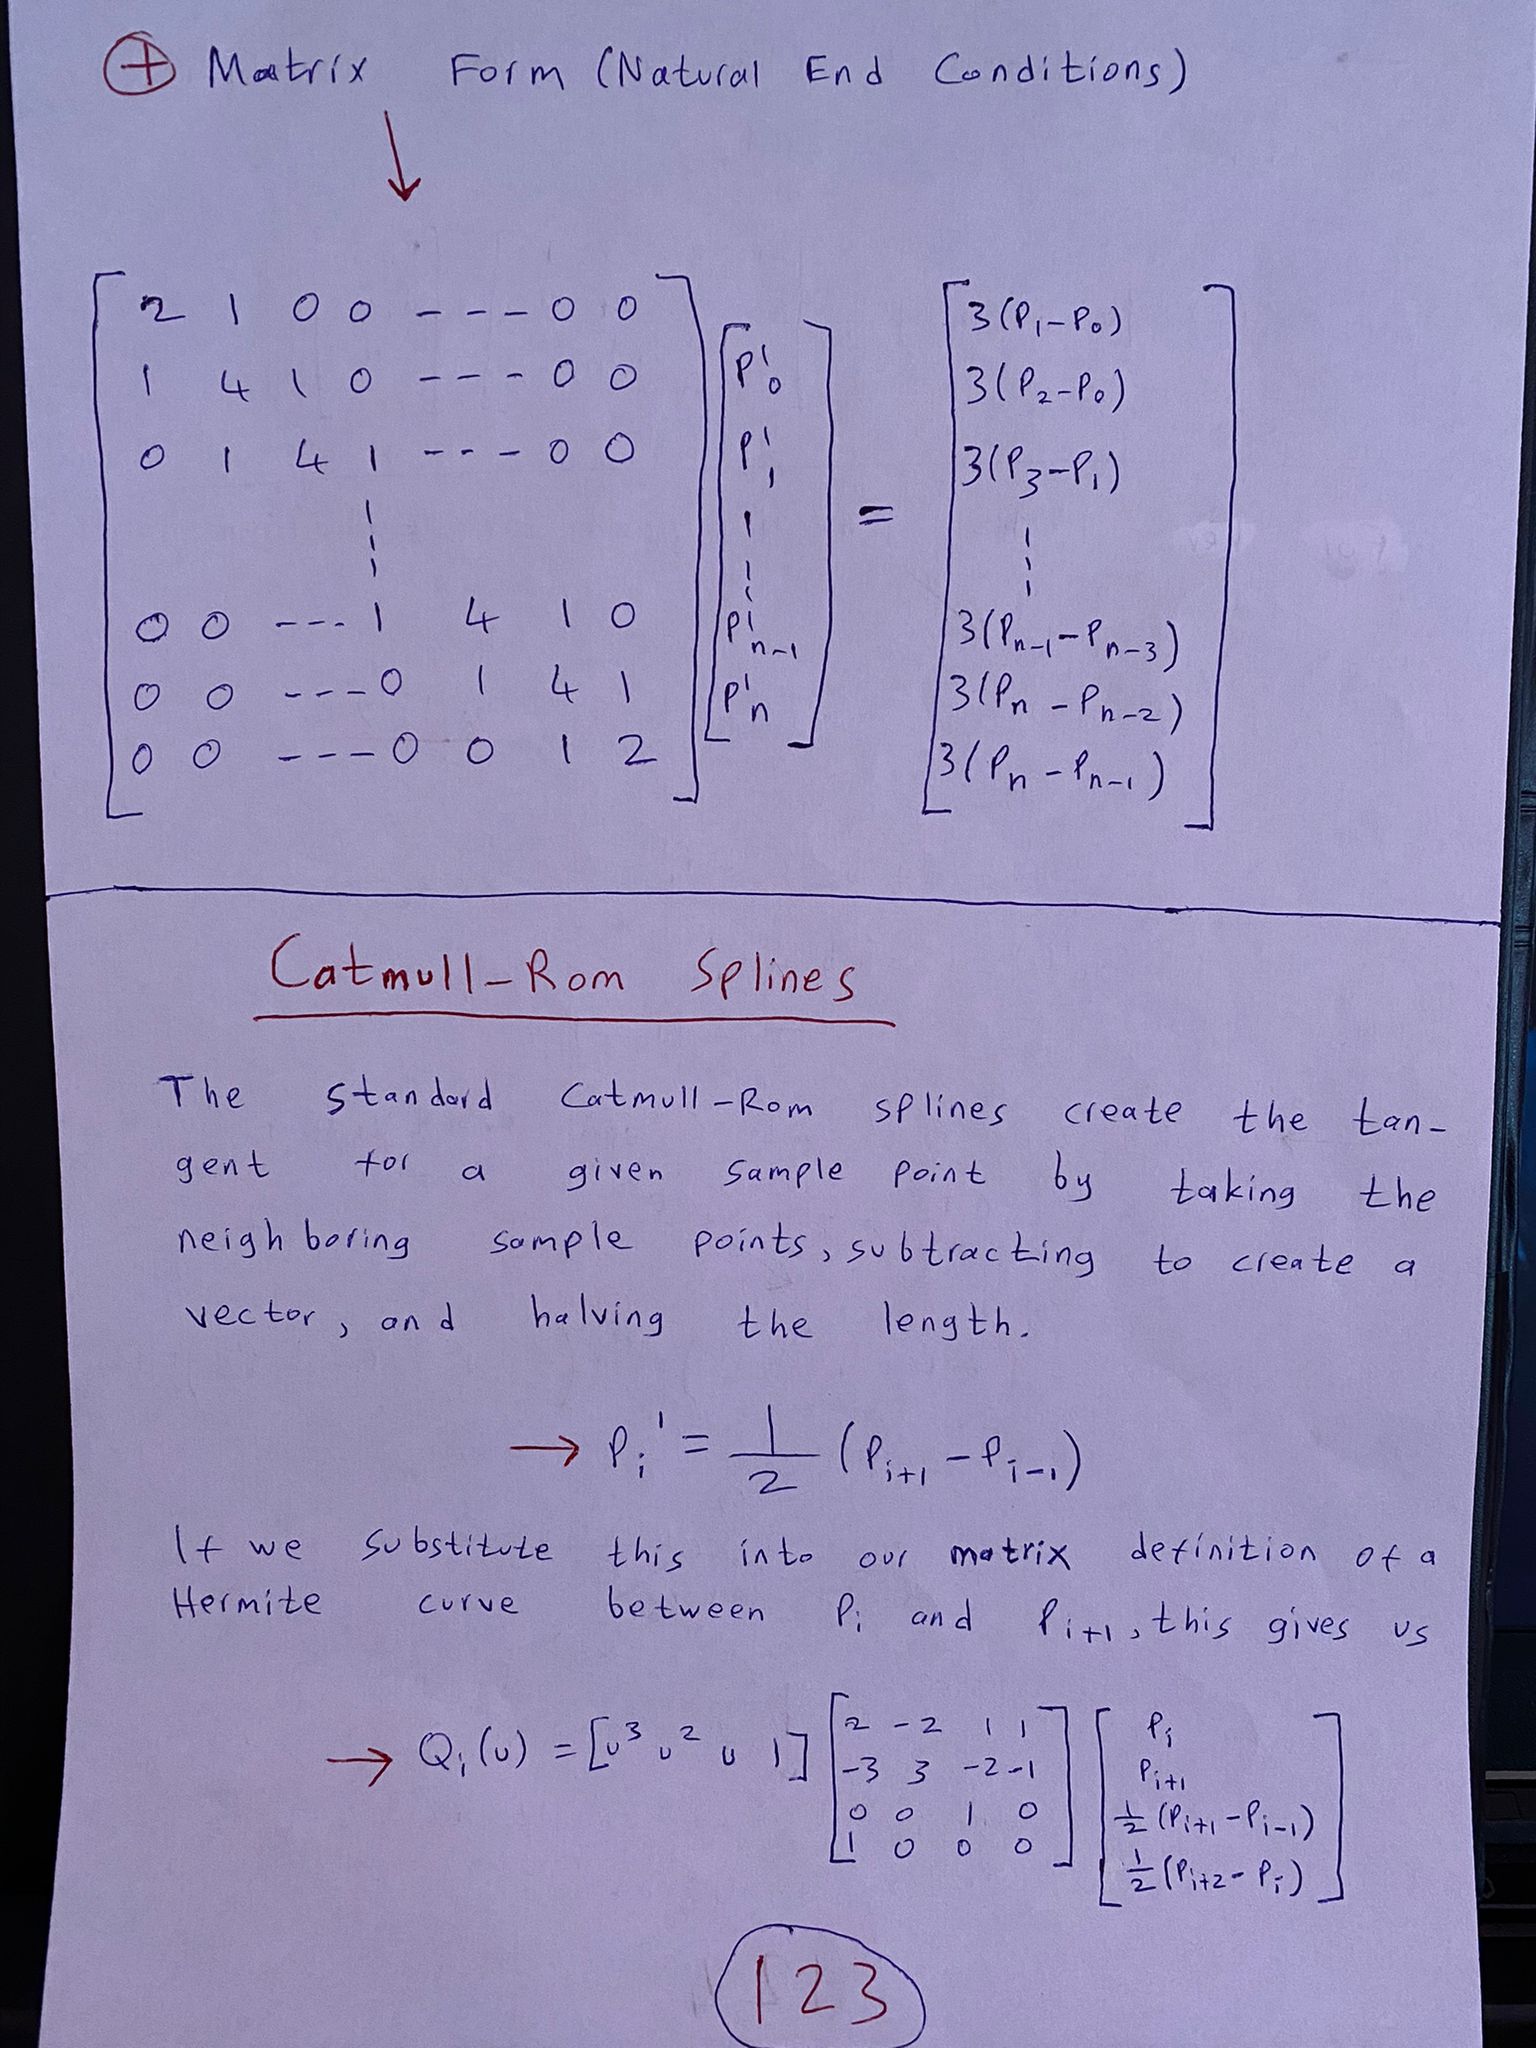 ⊕ Matrix Form (Natural End Conditions)
↓
[2 1 0 0 --- 0 0] [P'0] = [3(P1-P0)]
[1 4 1 0 --- 0 0] [P'1] [3(P2-P0)]
[0 1 4 1 --- 0 0] [3(P3-P1)]
[0 0 --- 1 4 1 0] [P'n-1] [3(Pn-1-Pn-3)]
[0 0 --- 0 1 4 1] [P'n] [3(Pn-Pn-2)]
[0 0 --- 0 0 1 2] [3(Pn-Pn-1)]
Catmull-Rom Splines
The standard Catmull-Rom splines create the tan-
gent for a given sample point by taking the
neighboring sample points, subtracting to create a
vector, and halving the length.
→ Pi' = 1/2 (Pi+1 - Pi-1)
If we substitute this into our matrix definition of a
Hermite curve between Pi and Pi+1, this gives us
→ Qi(u) = [u³ u² u 1] [2 -2 1 1] [Pi]
[-3 3 -2 -1] [Pi+1]
[0 0 1 0] [1/2 (Pi+1-Pi-1)]
[1 0 0 0] [1/2 (Pi+2-Pi)]
123